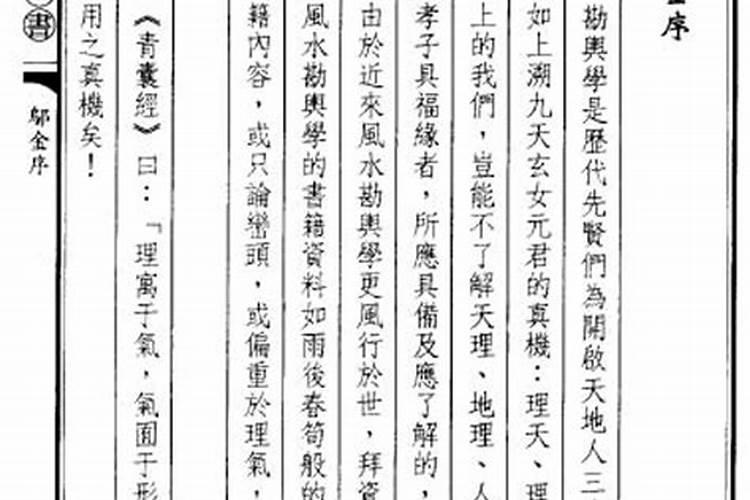 序
勘輿學是歷代先賢們為開啟天地人三
如上溯九天玄女元君的真機：理天、理
上的我們，豈能不了解天理、地理、人
孝子具福緣者，所應具備及應了解的，
由於近來風水勘輿學更風行於世，拜資
風水勘輿學的書籍資料如雨後春筍般的
籍內容，或只論巒頭，或偏重於理氣，
《青囊經》曰：「理寓于氣，氣囿于形
用之真機矣！
書
鄔金序